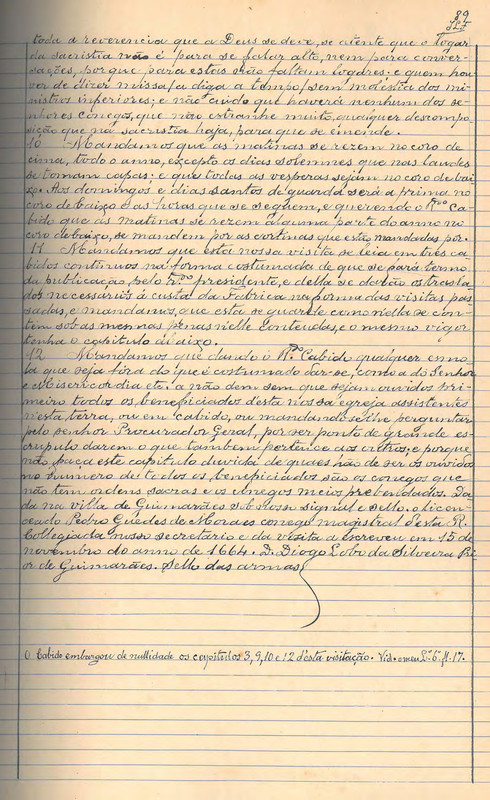 39
toda a reverencia que a Deus se deve, se atente que o logar
da sacristia não é para se falar alto, nem para conver-
sações, porque para estas não faltam logares: e quem hou-
ver de dizer missa, a diga a tempo, sem molestia dos mi-
nistros inferiores; e não cuido que haverá nenhum dos se-
nhores conegos, que não estranhe muito, qualquer descompo-
sição que na sacristia haja, para que se emende.
10 Mandamos que as matinas se rezem no coro de
cima, todo o anno, excepto os dias solemnes que nas laudes
se tomam capas: e que todas as vesperas sejam no coro de bai-
xo. Aos domingos e dias santos de guarda será a prima no
coro de baixo e as horas que se seguem, e querendo o R.do Ca-
bido que as matinas se rezem alguma parte do anno no
coro de baixo, se mandem por as cortinas que estão mandadas por.
11 Mandamos que esta nossa visita se leia em tres ca-
bidos continuos na forma costumada de que se fará termo
da publicação pelo R.do presidente, e della se darão os trasla-
dos necessarios á custa da Fabrica na forma das visitas pas-
sadas, e mandamos, que esta se guarde como nella se con-
têm sob as mesmas penas nella contendas, e o mesmo vigor
tenha o capitulo d'aixo.
12 Mandamos que dando o R.do Cabido qualquer esmo-
la que seja fóra do que é costumado dar-se, como a do Senhor
e Misericordia etc. a não dem sem que sejam ouvidos pri-
meiro todos os beneficiados desta nossa egreja assistentes
n'esta terra, ou em cabido, ou mandando-se-lhe perguntar
pelo senhor Procurador Geral, por ser ponto de grande es-
crupulo darem o que tambem pertence aos outros; e porque
não faça este capitulo duvida de quaes hão de ser os ouvidos
no numero de todos os beneficiados são os conegos que
não tem ordens sacras e os conegos meio prebendados. Da-
da na villa de Guimarães sob nosso signal e sello. o licen-
ceado Pedro Guedes de Moraes conego magistral desta R.
Collegiada nosso secretario e da visita a escreveu em 15 de
novembro do anno de 1664. D. Diogo Lobo da Silveira Pri-
or de Guimarães. Sello das armas
O Cabido embargou de nullidade os capitulos 3, 9, 10 e 12 d'esta visitação. Vid. o meu L.º 6.º fl. 17.